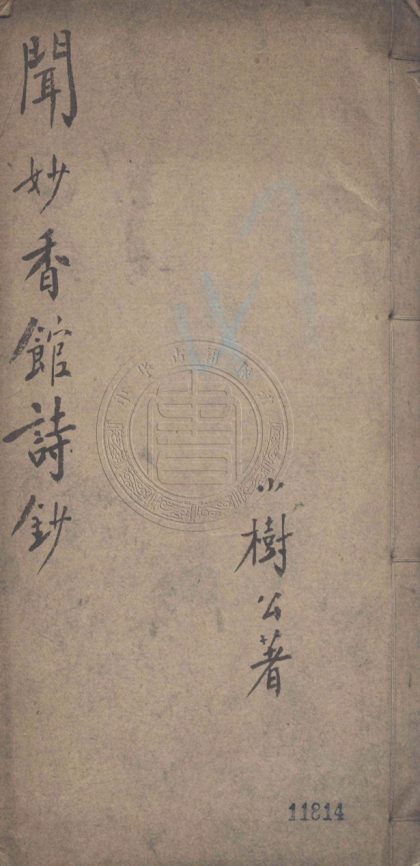 聞妙香館詩鈔
小樹公著
11814